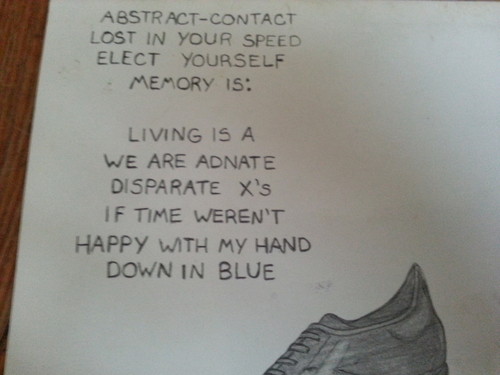 ABSTRACT-CONTACT
LOST IN YOUR SPEED
ELECT YOURSELF
MEMORY IS:
LIVING IS A
WE ARE ADNATE
DISPARATE X'S
IF TIME WEREN'T
HAPPY WITH MY HAND
DOWN IN BLUE